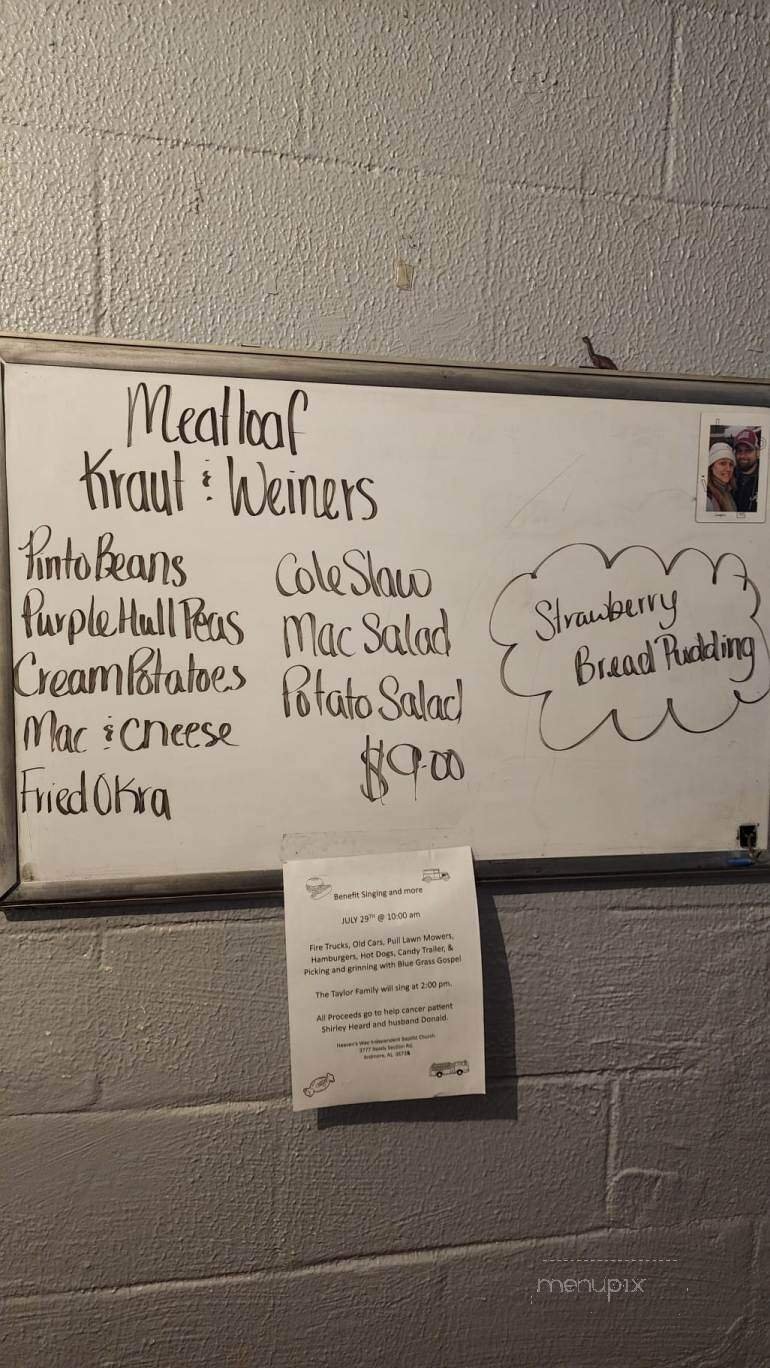 Meatloaf
Kraut & Weiners
Pinto Beans
Purple Hull Peas
Cream Potatoes
Mac & Cheese
Fried Okra
Cole Slaw
Mac Salad
Potato Salad
$9.00
Strawberry
Bread Pudding
Benefit Singing and more
JULY 29TH @ 10:00 am
Fire Trucks, Old Cars, Pull Lawn Mowers,
Hamburgers, Hot Dogs, Candy Trailer, &
Picking and grinning with Blue Grass Gospel
The Taylor Family will sing at 2:00 pm.
All Proceeds go to help cancer patient
Shirley Heard and husband Donald.
Heaven's Way Independent Baptist Church
Section Rd.
Ardmore, AL
menupix